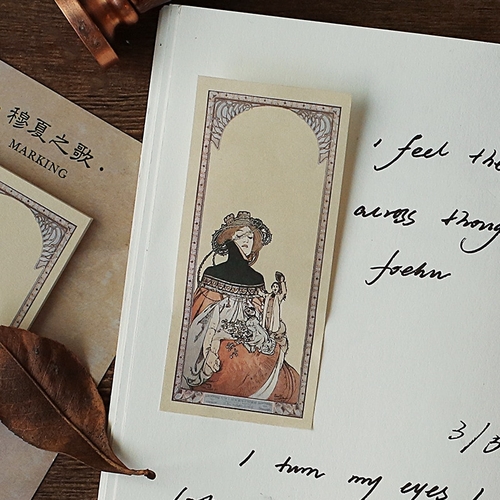 穆夏之歌.
MARKING
i feel the
across
foehn
3/3
I turn my eyes